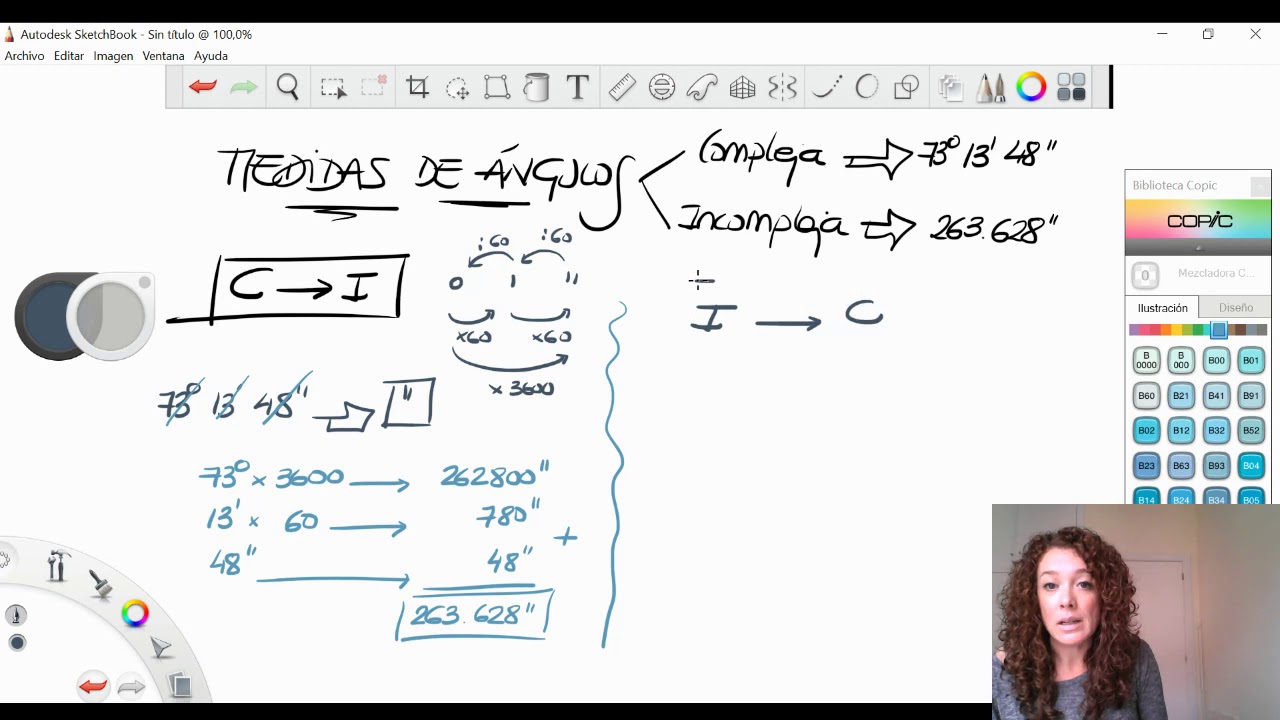 Autodesk SketchBook - Sin título @ 100,0%
Archivo Editar Imagen Ventana Ayuda
MEDIDAS DE ÁNGULOS
Compleja ⇒ 73º 13' 48''
Incompleja ⇒ 263.628''
C → I
:60 :60
o ' ''
x60 x60
x 3600
I → C
73º 13' 48'' ⇒ ''
73º x 3600 → 262800''
13' x 60 → 780''
+
48'' → 48''
263.628''
Biblioteca Copic
COPIC
0 Mezcladora C...
Ilustración Diseño
B0000 B000 B00 B01
B60 B21 B41 B91
B02 B12 B32 B52
B23 B63 B93 B04
B14 B24 B34 B05